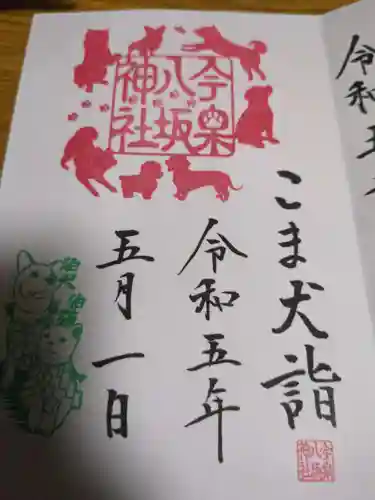 今泉
八坂
神社
こま犬詣
令和五年
五月一日
今泉
八坂
神社
令和五